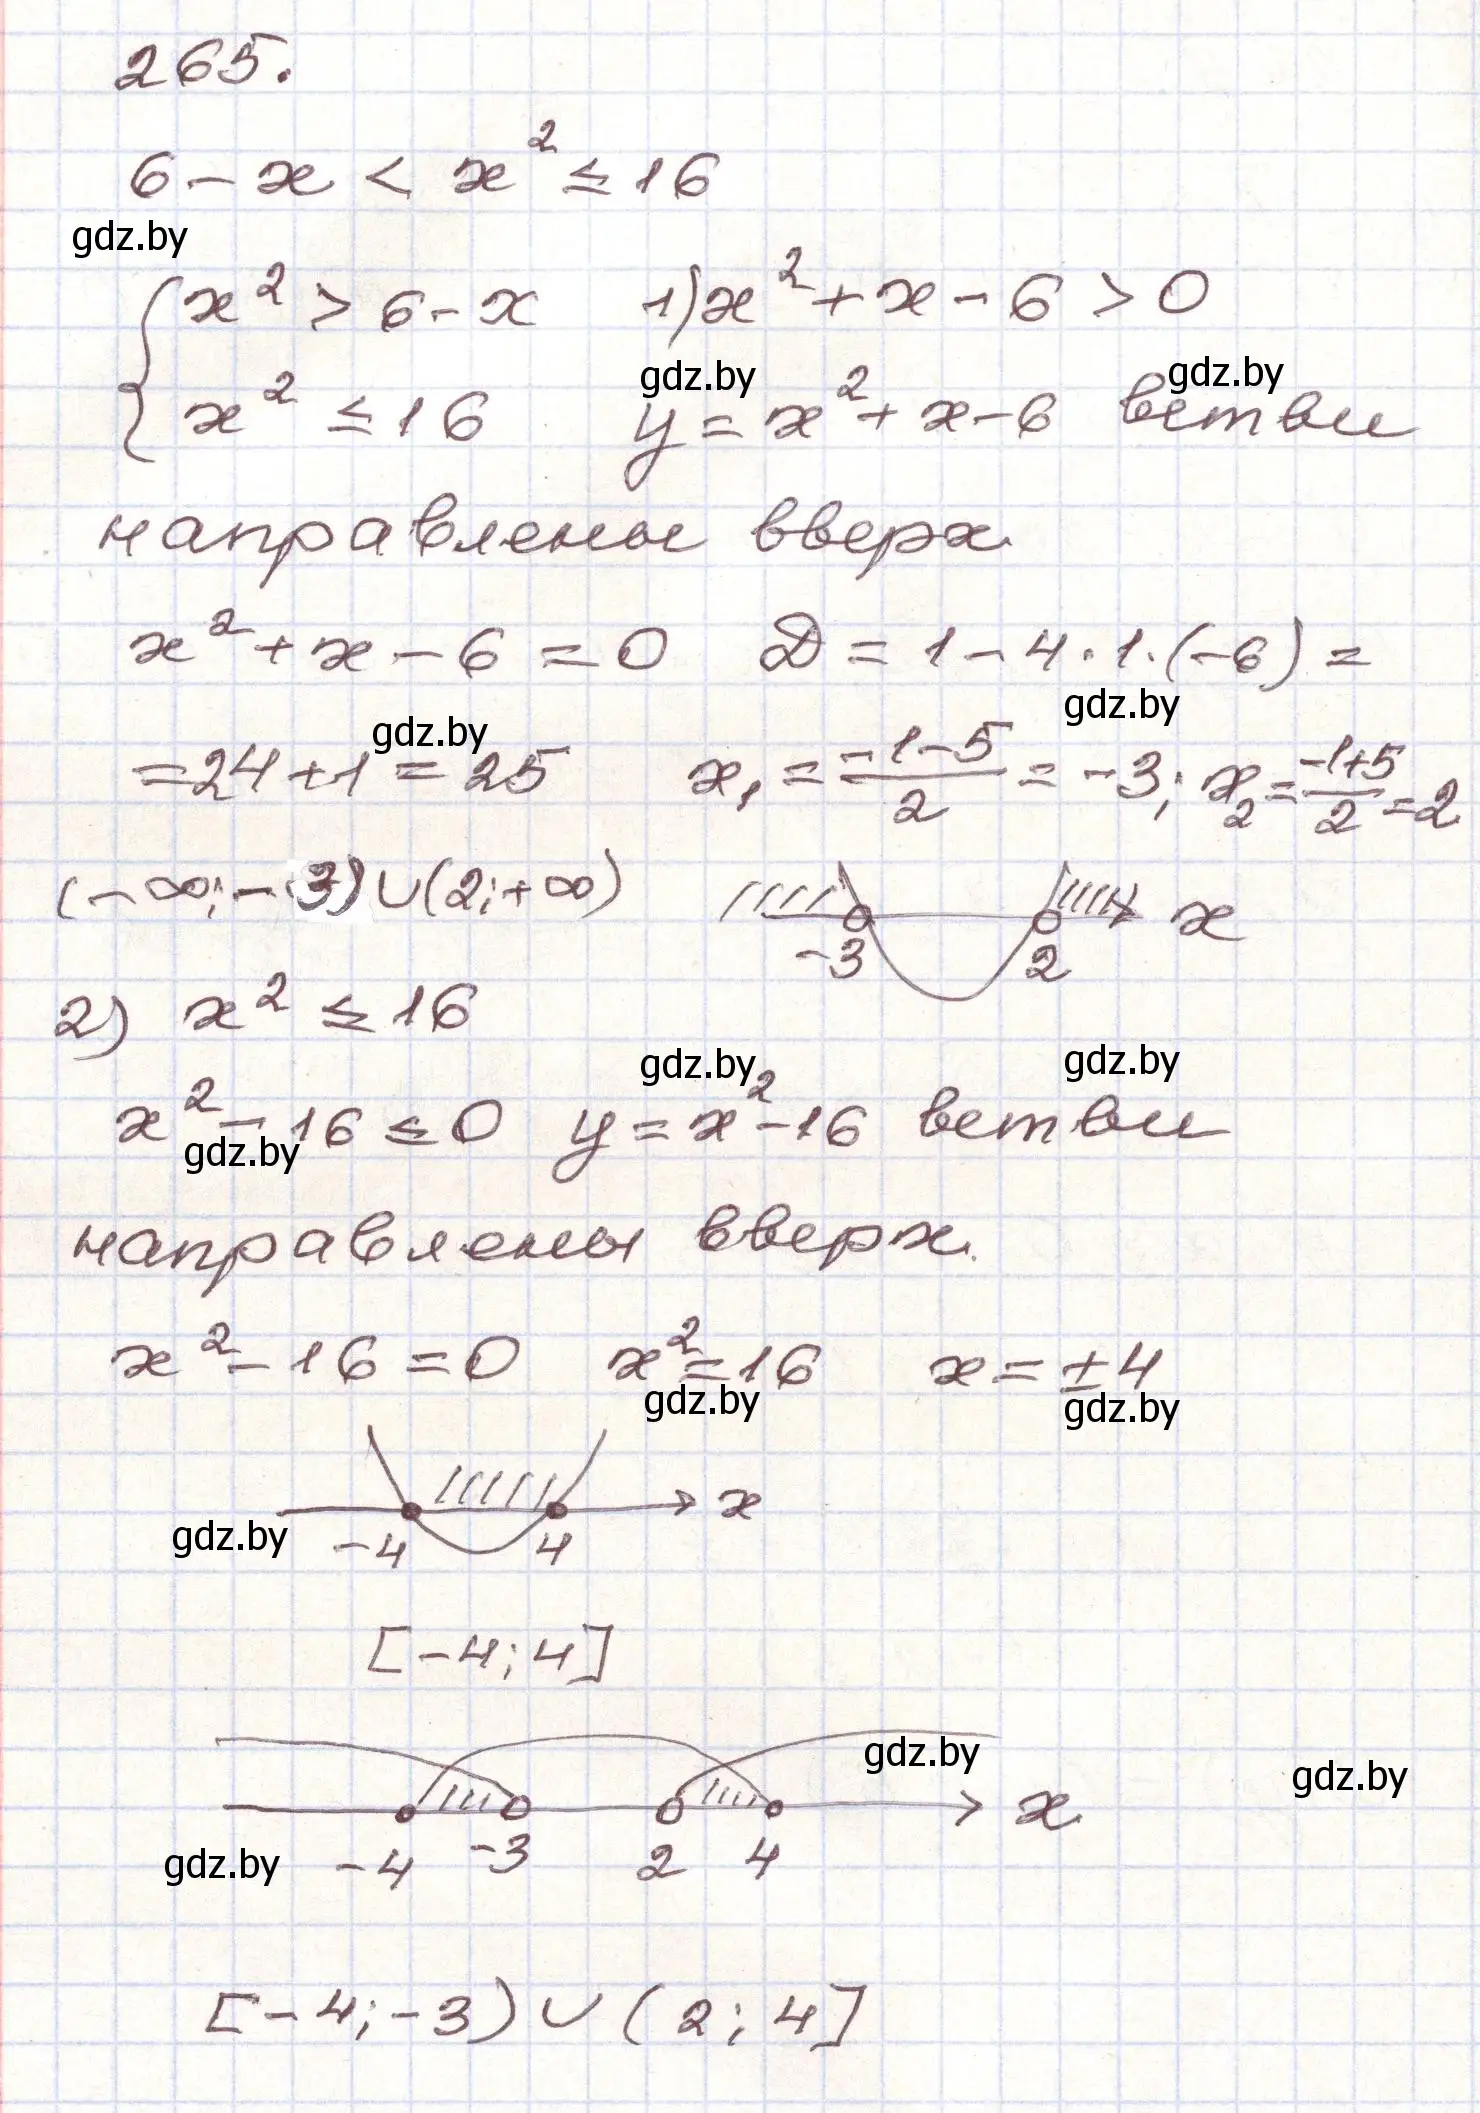 265.
6 - x < x² ≤ 16
gdz.by
{ x² > 6 - x   1) x² + x - 6 > 0
gdz.by gdz.by
x² ≤ 16   y = x² + x - 6 ветви
направлены вверх.
x² + x - 6 = 0   D = 1 - 4 · 1 · (-6) =
gdz.by gdz.by
= 24 + 1 = 25   x₁ = (-1-5)/2 = -3; x₂ = (-1+5)/2 = 2
(-∞; -3) ∪ (2; +∞)   -3 2 x
2) x² ≤ 16
gdz.by gdz.by
x² - 16 ≤ 0   y = x² - 16 ветви
gdz.by
направлены вверх.
x² - 16 = 0   x² = 16   x = ±4
gdz.by gdz.by
x
gdz.by -4 4
[-4; 4]
gdz.by gdz.by
x
gdz.by -4 -3 2 4
[-4; -3) ∪ (2; 4]